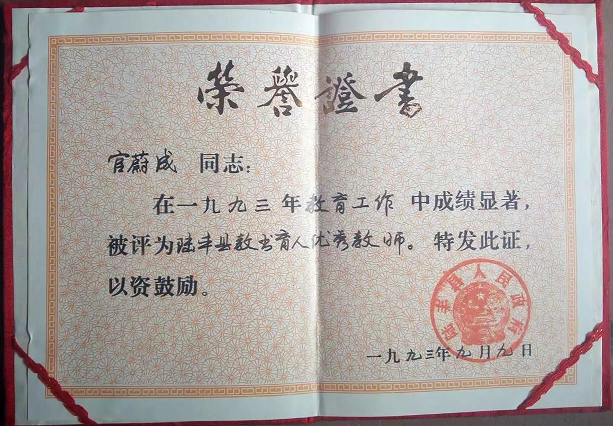 荣誉證書
官蔚成 同志：
在一九九三年教育工作 中成绩显著，
被评为陆丰县教书育人优秀教师。特发此证，
以资鼓励。
陆丰县人民政府
一九九三年九月九日